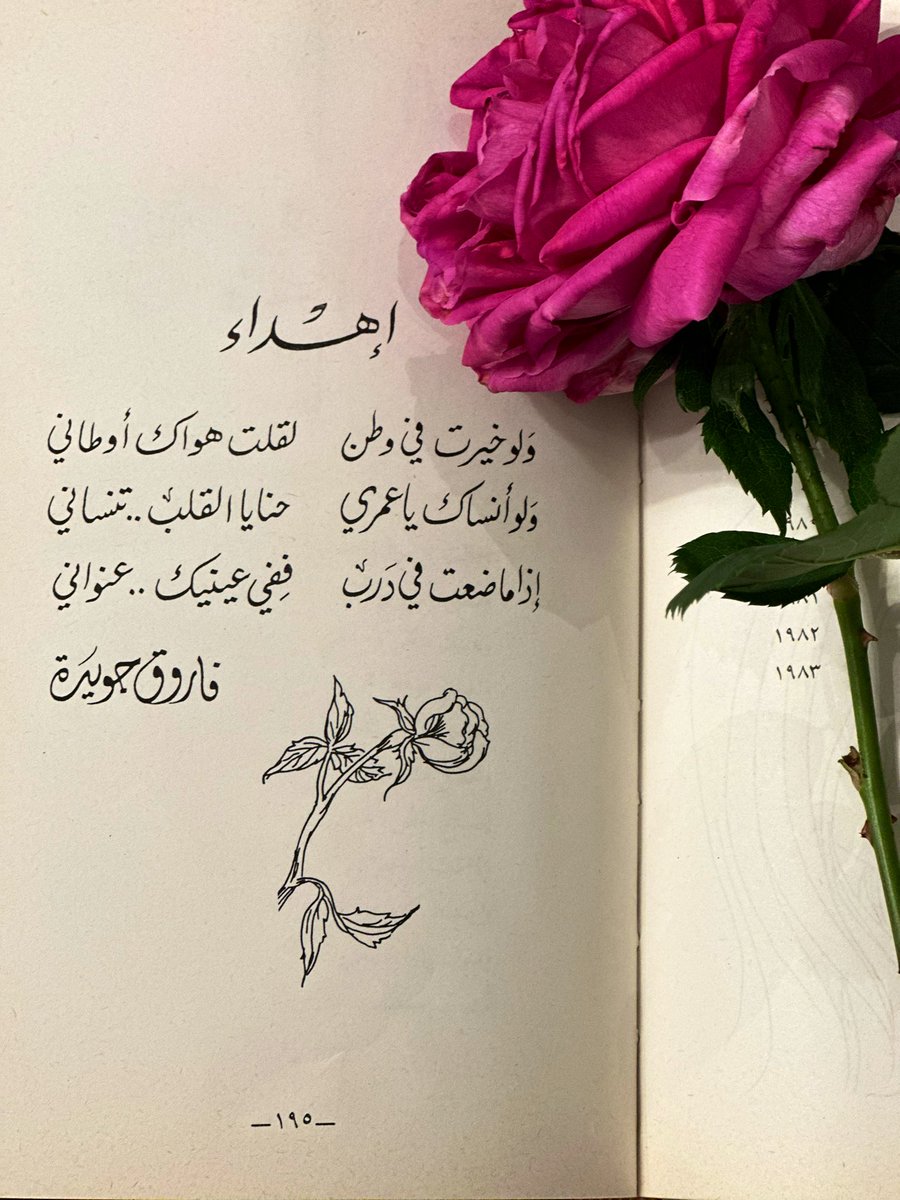 إهداء
وَلو خيرت في وطن لقلت هواك أوطاني
وَلو أنساك يا عمري حنايا القلب .. تنساني
إذا ما ضعت في دَرب ففِي عينيك .. عنواني
فاروق جويدَة
١٩٨٢
١٩٨٣
ـ ١٩٥ ـ